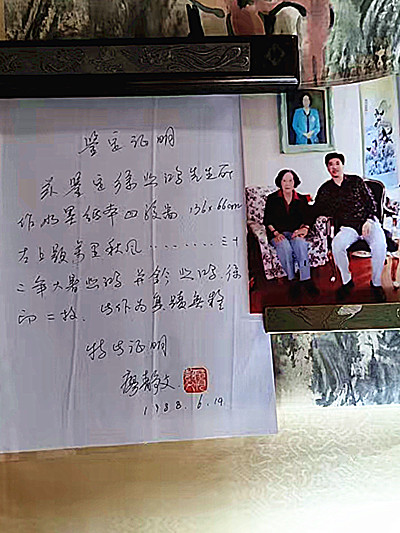 鉴定证明
兹鉴定徐悲鸿先生所
作水墨纸本四 136x66cm
上题萬里秋风........三十
二年大暑悲鸿 并钤悲鸿、徐
印二枚. 此作为真蹟无疑
特此证明
廖静文
1988.6.19.